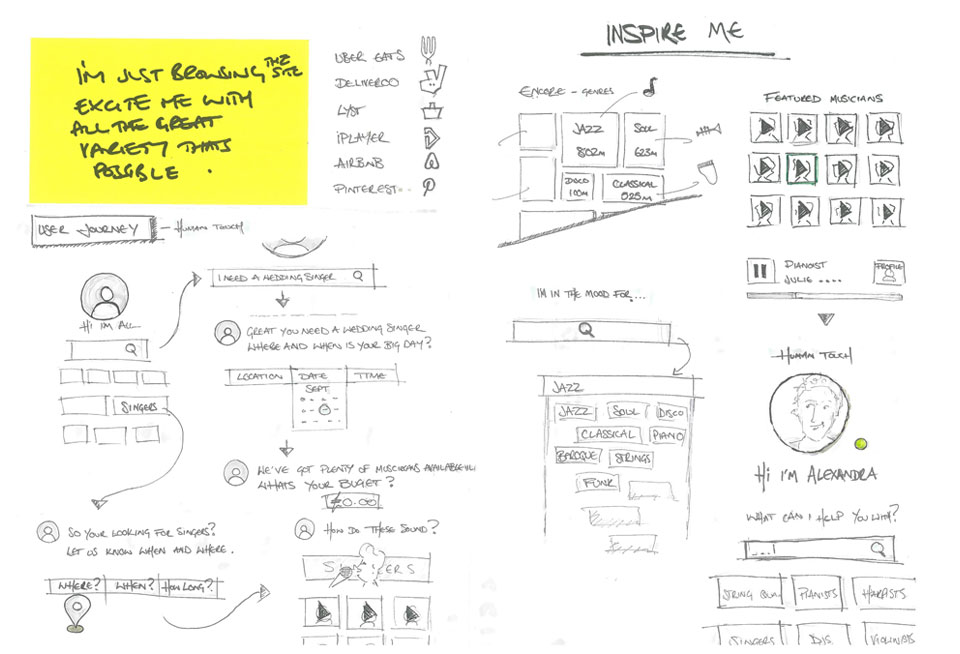 I'M JUST BROWSING THE SITE
EXCITE ME WITH
ALL THE GREAT
VARIETY THATS
POSSIBLE .
UBER EATS
DELIVEROO
LYST
iPLAYER
AIRBNB
PINTEREST...
USER JOURNEY — HUMAN TOUCH
HI I'M ALL...
SINGERS
I NEED A WEDDING SINGER
GREAT YOU NEED A WEDDING SINGER
WHERE AND WHEN IS YOUR BIG DAY?
LOCATION DATE TIME
SEPT.
WE'VE GOT PLENTY OF MUSICIANS AVAILABLE
WHATS YOUR BUGET?
£0.00
SO YOUR LOOKING FOR SINGERS?
LET US KNOW WHEN AND WHERE.
WHERE? WHEN? HOW LONG?
HOW DO THESE SOUND?
SINGERS
INSPIRE ME
ENCORE - GENRES
JAZZ
802M
SOUL
623M
DISCO
100M
CLASSICAL
025M
FEATURED MUSICIANS
PIANOIST
JULIE ....
PROFILE
I'M IN THE MOOD FOR...
JAZZ
JAZZ SOUL DISCO
CLASSICAL PIANO
BAROQUE STRINGS
FUNK
HUMAN TOUCH
HI I'M ALEXANDRA
WHAT CAN I HELP YOU WITH?
STRING QUA PIANISTS HARPISTS
SINGERS DJS. VIOLINISTS